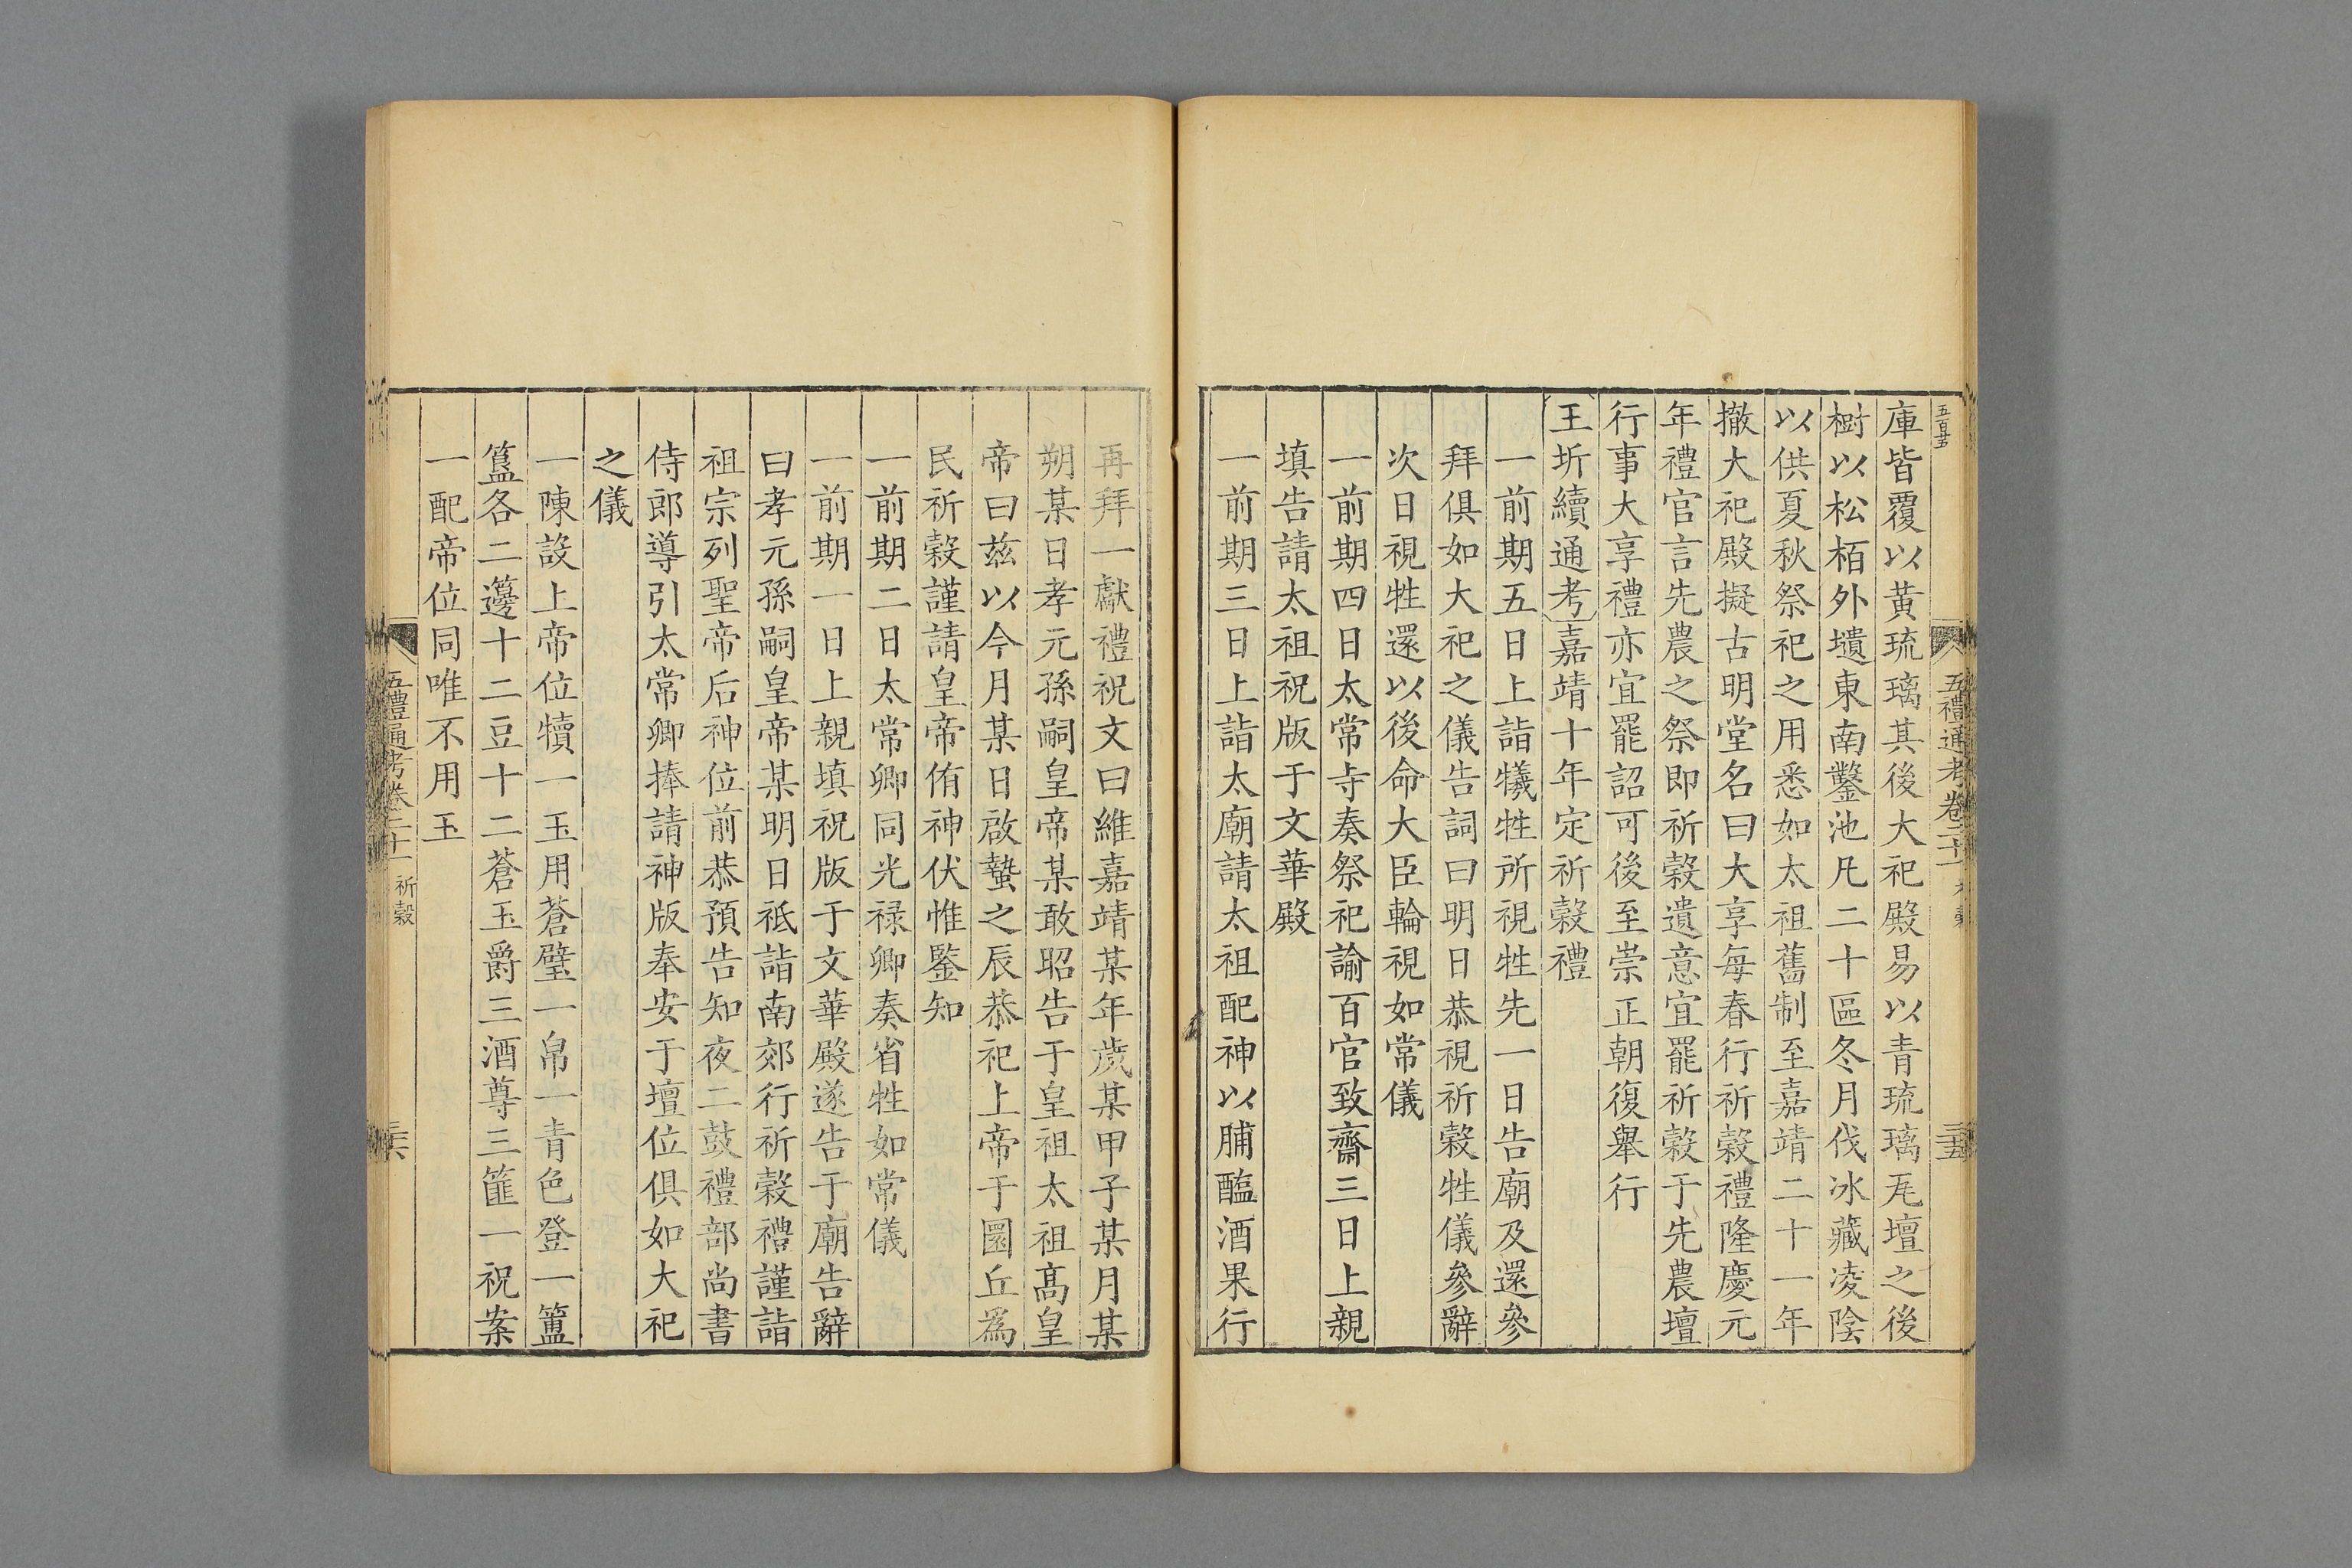 庫皆覆以黃琉璃其後大祀殿易以青琉璃瓦壇之後
樹以松栢外壝東南鑿池凡二十區冬月伐冰藏凌陰
以供夏秋祭祀之用悉如太祖舊制至嘉靖二十一年
撤大祀殿擬古明堂名曰大享每春行祈糓禮隆慶元
年禮官言先農之祭即祈糓遺意宜罷祈糓于先農壇
行事大享禮亦宜罷詔可後至崇正朝復舉行
王圻續通考嘉靖十年定祈糓禮
一前期五日上詣犧牲所視牲先一日告廟及還參
拜俱如大祀之儀告詞曰明日恭視祈糓牲儀參辭
次日視牲還以後命大臣輪視如常儀
一前期四日太常寺奏祭祀諭百官致齋三日上親
填告請太祖祝版于文華殿
一前期三日上詣太廟請太祖配神以脯醢酒果行
再拜一獻禮祝文曰維嘉靖某年歲某甲子某月某
朔某日孝元孫嗣皇帝某敢昭告于皇祖太祖高皇
帝曰茲以今月某日啟蟄之辰恭祀上帝于圜丘爲
民祈糓謹請皇帝侑神伏惟鑒知
一前期二日太常卿同光禄卿奏省牲如常儀
一前期一日上親填祝版于文華殿遂告于廟告辭
曰孝元孫嗣皇帝某明日祗詣南郊行祈糓禮謹詣
祖宗列聖帝后神位前恭預告知夜二鼓禮部尚書
侍郎導引太常卿捧請神版奉安于壇位俱如大祀
之儀
一陳設上帝位犢一玉用蒼璧一帛一青色登一簠
簋各二籩十二豆十二蒼玉爵三酒尊三篚一祝案
一配帝位同唯不用玉
五禮通考卷二十一 祈穀
三十六